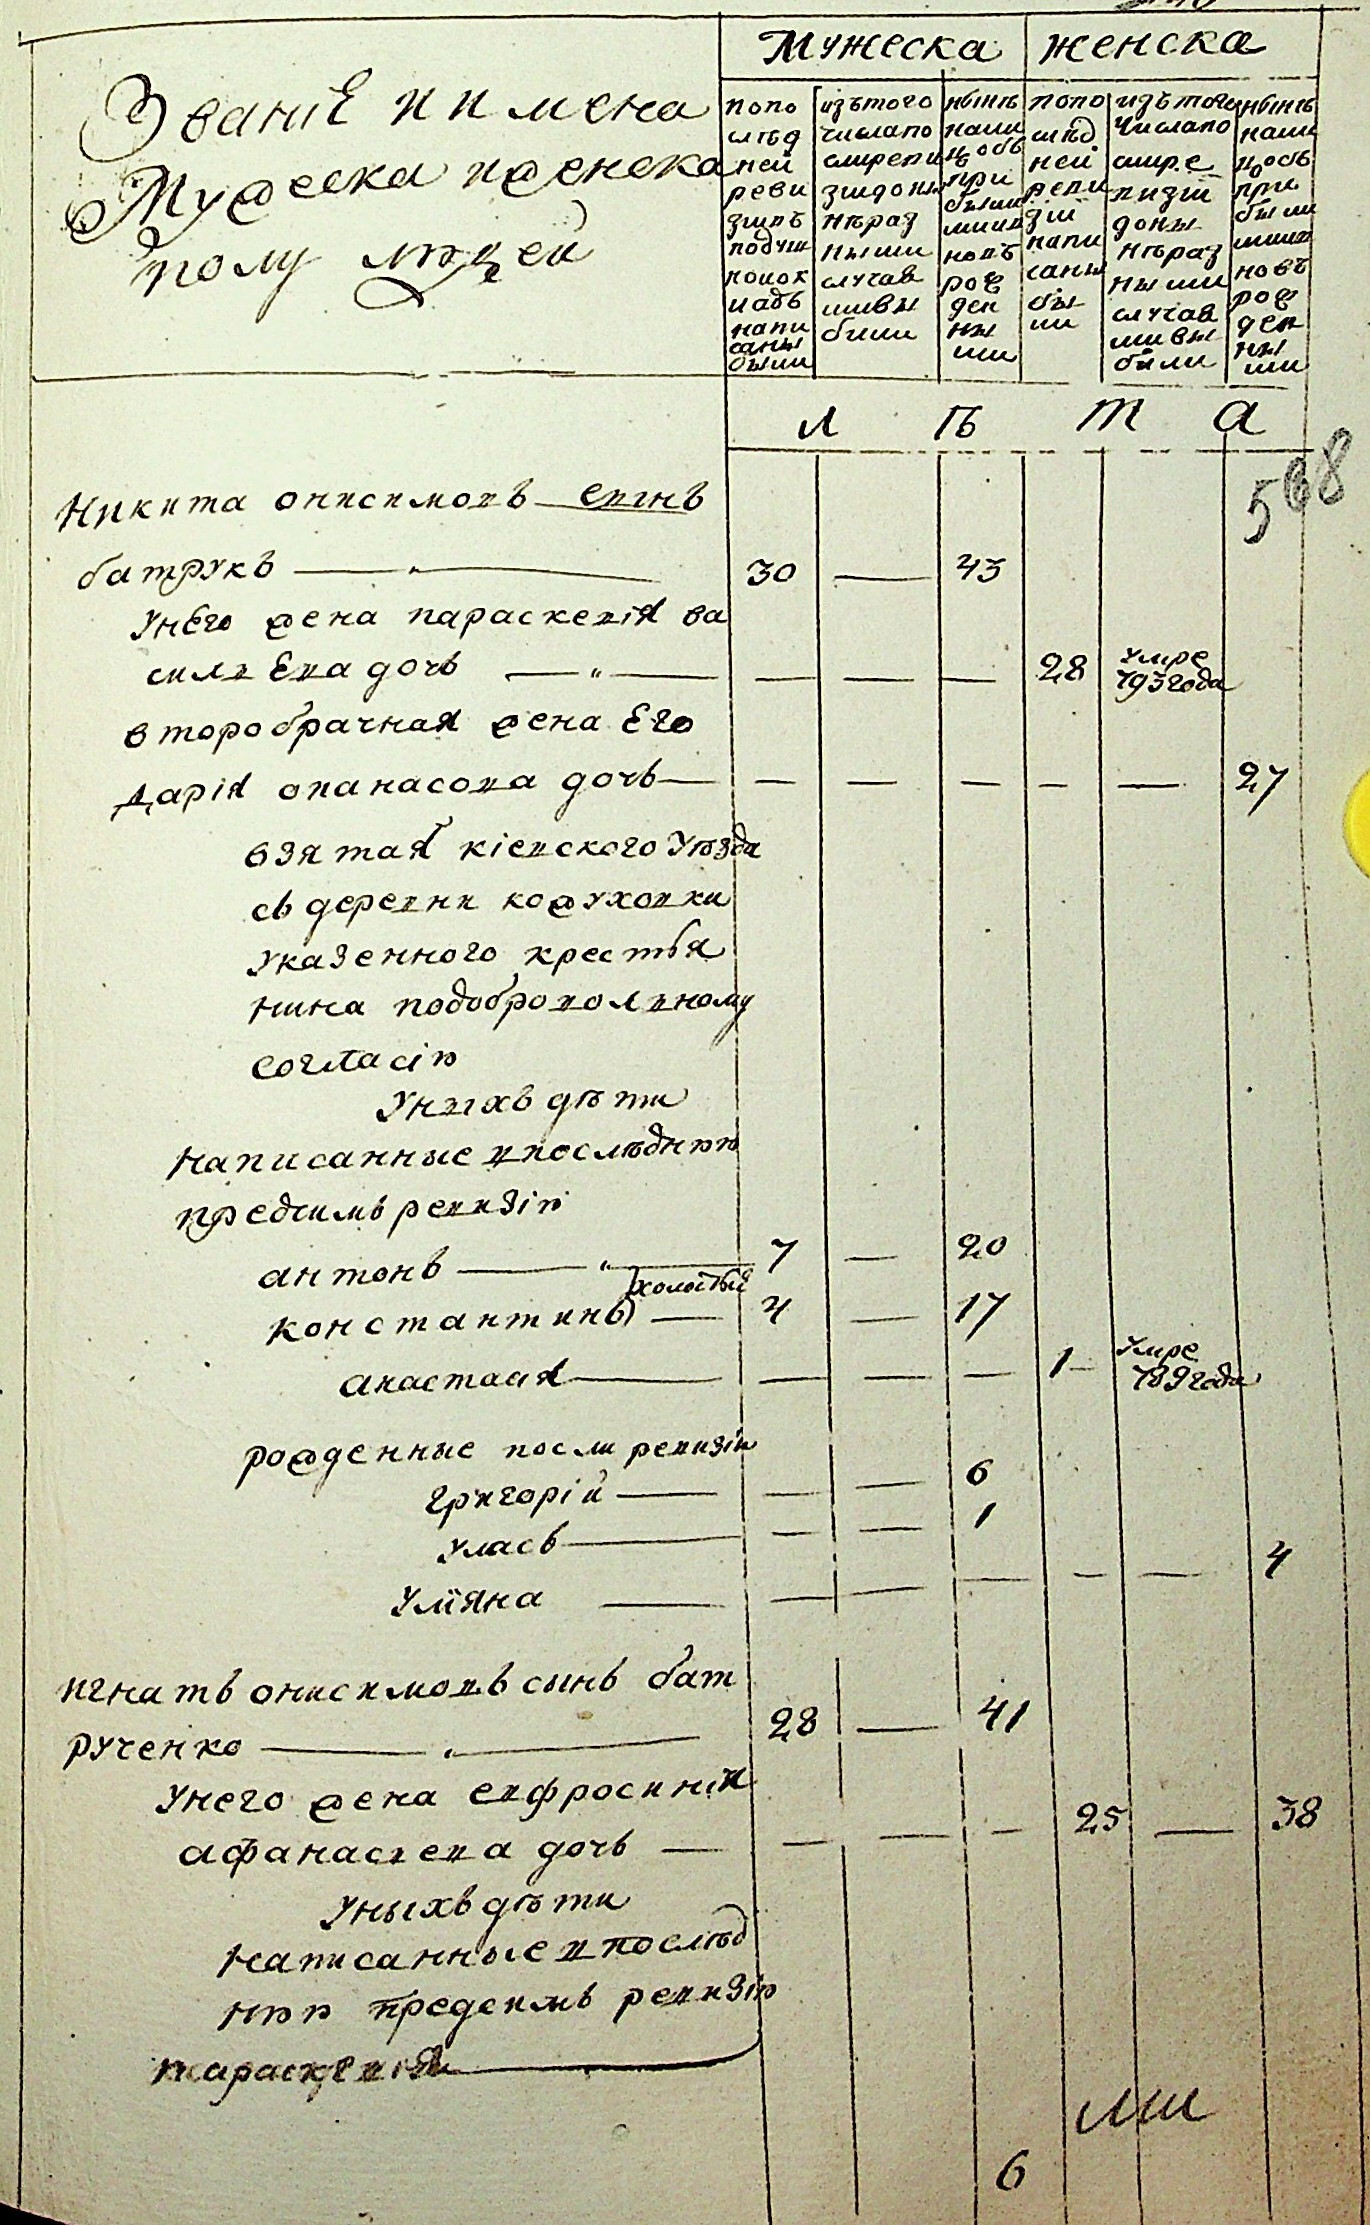 Мужеска женска
Званіе и имена
Мужеска и женска
полу людей
попо слѣд ней реви зіивъ подуш нойок ладъ напи саны были
изътого числапо слѣреви зіидоны нѣраз ными случая мивы были
нынѣ нали цообъ при былы миин новъ рож ден ны ми
попо слѣд ней реви зіи напи саны бы ли
изътого числапо слѣ ре визіи доны нѣраз ными случая мивы были
нынѣ нали цость при были миин новъ рож ден ны ми
л ѣ т а
568
Никита онисимовъ синъ
батрукъ — " — 30 — 43
Унего жена параскевія ва
силиева дочъ — " — — — — 28 Умре 793года
второбрачная жена Его
дарія опанасова дочъ — — — — — — 27
взятая кіевского Уѣзда
съ деревни кожуховки
Указенного крестья
нина подоброволвному
согласію
Унихъ дѣти
написанные впослѣднюю
предсимъ ревизію
антонъ — " — 7 — 20
холостый
константинъ) — 4 — 17
анастасія — — — — 1 — Умре 789года
рожденные посли ревизіи
григорій — — — 6
Уласъ — — — 1
Уліяна — — — — — — 4
игнатъ онисимовъ сынъ бат
рученко — " — 28 — 41
Унего жена евфросинія
афанасиева дочъ — — — — 25 — 38
Уныхъ дѣти
написанные впослѣд
нюю предсимъ ревизію
параскевія
6